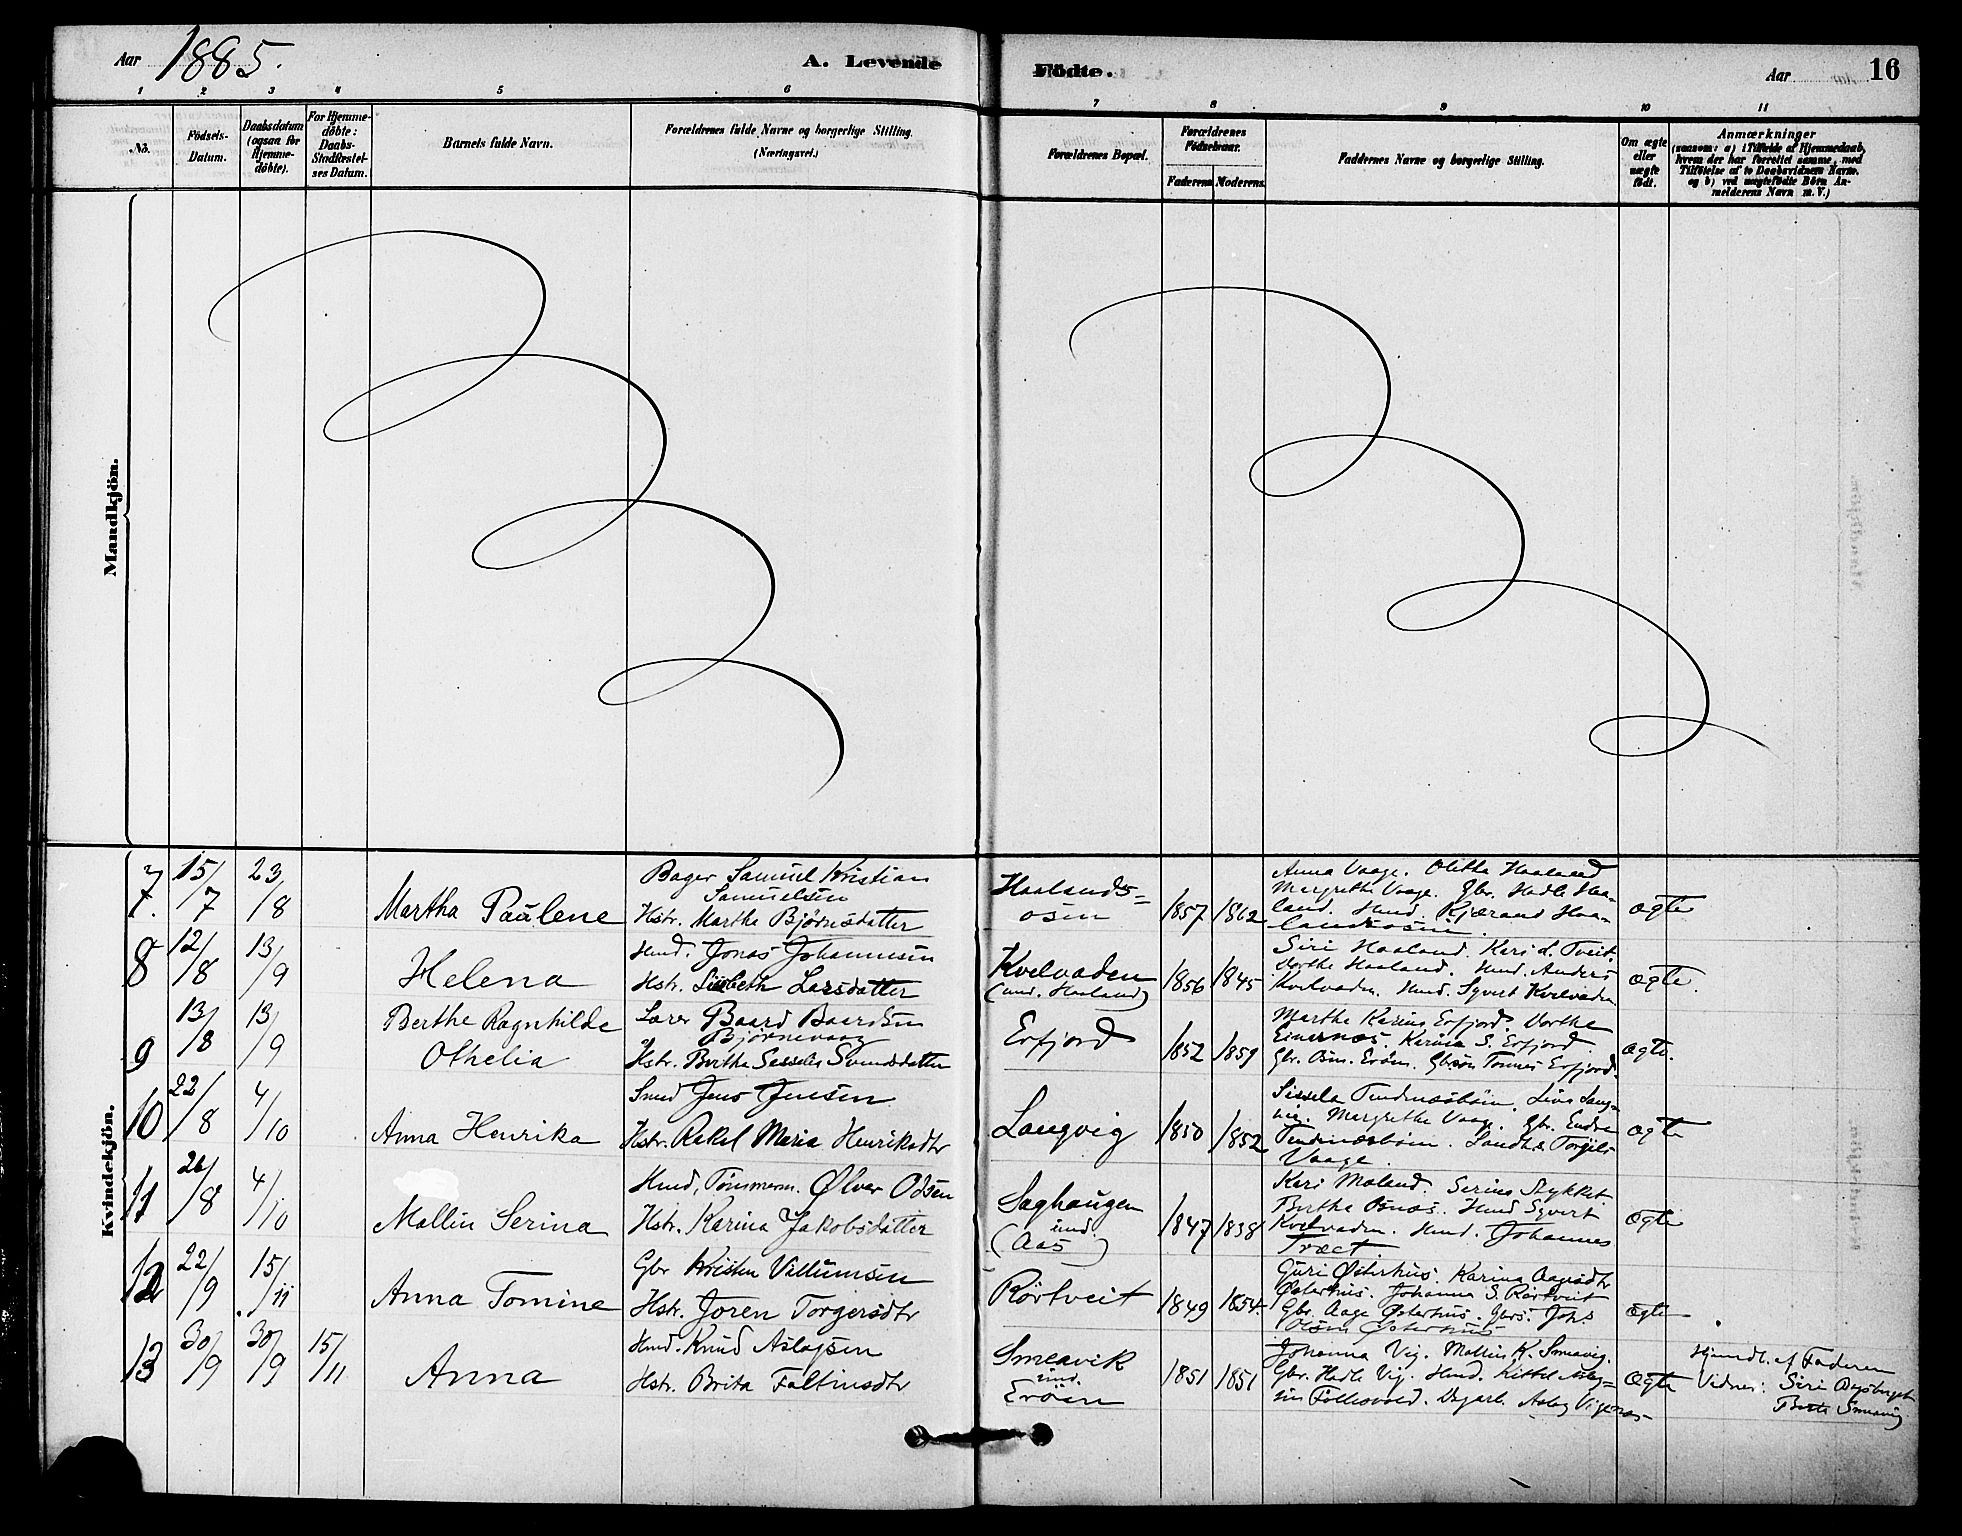 Aar 1885.
A. Levende
Födte.
Aar
16
1 2 3 4 5 6
7 8 9 10 11
No.
Födsels-
Datum.
Daabsdatum
(ogsaa for
Hjemme-
döbte).
For Hjemme-
döbte:
Daabs-
Stadfæstel-
ses Datum.
Barnets fulde Navn.
Forældrenes fulde Navne og borgerlige Stilling.
(Næringsvei.)
Forældrenes Bopæl.
Forældrenes
Födselsaar.
Faderens Moderens
Faddernes Navne og borgerlige Stilling.
Om ægte
eller
uægte
födt.
Anmærkninger
(saasom: a) i Tilfælde af Hjemmedaab,
hvem der har forrettet samme, med
Tilföielse af to Daabsvidners Navne.
og b) ved uægtefödte Börn An-
melderens Navn m. V.)
Mandkjön.
Kvindekjön.
7.
15/7
23/8
Martha Paulene
Bager Samuel Kristian
Samuelsen
Hstr. Martha Bjørnsdatter
Haalands=
osen
1857
1862
Anna Vaage. Olitha Haaland
Margrethe Vaage. Gbr. Hadle Haa-
land. Hmd. Kjærand Haa-
landsosen.
ægte
8
12/8
13/9
Helena
Hmd. Jonas Johannesen
Hstr. Lisbeth Larsdatter
Kvelvaden
(und. Haaland)
1856
1845
Siri Haaland. Kari d. Tveit.
Dorthe Haaland. Hmd. Anders
Kvelvaden. Hmd. Syvert Kvelvaden
ægte.
9
13/8
13/9
Berthe Ragnhilde
Othelia
Lærer Baard Baardsen
Bjørnevaag
Hstr. Berthe Svendsdatter
Erfjord
1852
1859
Marthe Karine Erfjord. Dorthe
Karina S. Erfjord.
Gbr. Osm. Erøen. Gbrsøn Tønnes Erfjord.
ægte.
10
22/8
4/10
Anna Henrika
Smed Jens Jensen
Hstr. Rakel Maria Henriksdtr
Langvig
1850
1852
Sissela Lang-
vig. Margrethe Vaage. Gbr. Endre
Torgils
Vaage.
ægte
11
26/8
4/10
Mallin Serina
Hmd, Tømmerm. Ølver Odsen
Hstr. Karina Jakobsdatter
Saghaugen
und.
(Aas)
1847
1838
Kari Moland. Serina Stykket
Berthe Osnes. Hmd Syvert
Kvelvaden. Hmd. Johannes
Træet.
ægte
12
22/9
15/11
Anna Tomine
Gbr Kristen Villumsen
Hstr. Joren Torgersdtr
Rörtveit
1849
1854.
Guri Østerhus. Karina Aagesdtr
Østerhus. Johanna S. Rørtveit
Gbr. Aage Østerhus. Gbrs. Johs
Olsen Østerhus
ægte
13
30/9
30/9
15/11
Anna
Hmd. Knud Aslagsen
Hstr. Brita Faltinsdtr
Smeavik
und.
Erøen
1851
1851
Johanna Vig. Mallin K. Smeavig.
Gbr. Hadle Vig. Hmd. Kittel Aslag=
sen Folkevold. Dagarb. Aslag Vigenes
ægte
Hjemdb. af Faderen
Vidner: Siri
Smeavig